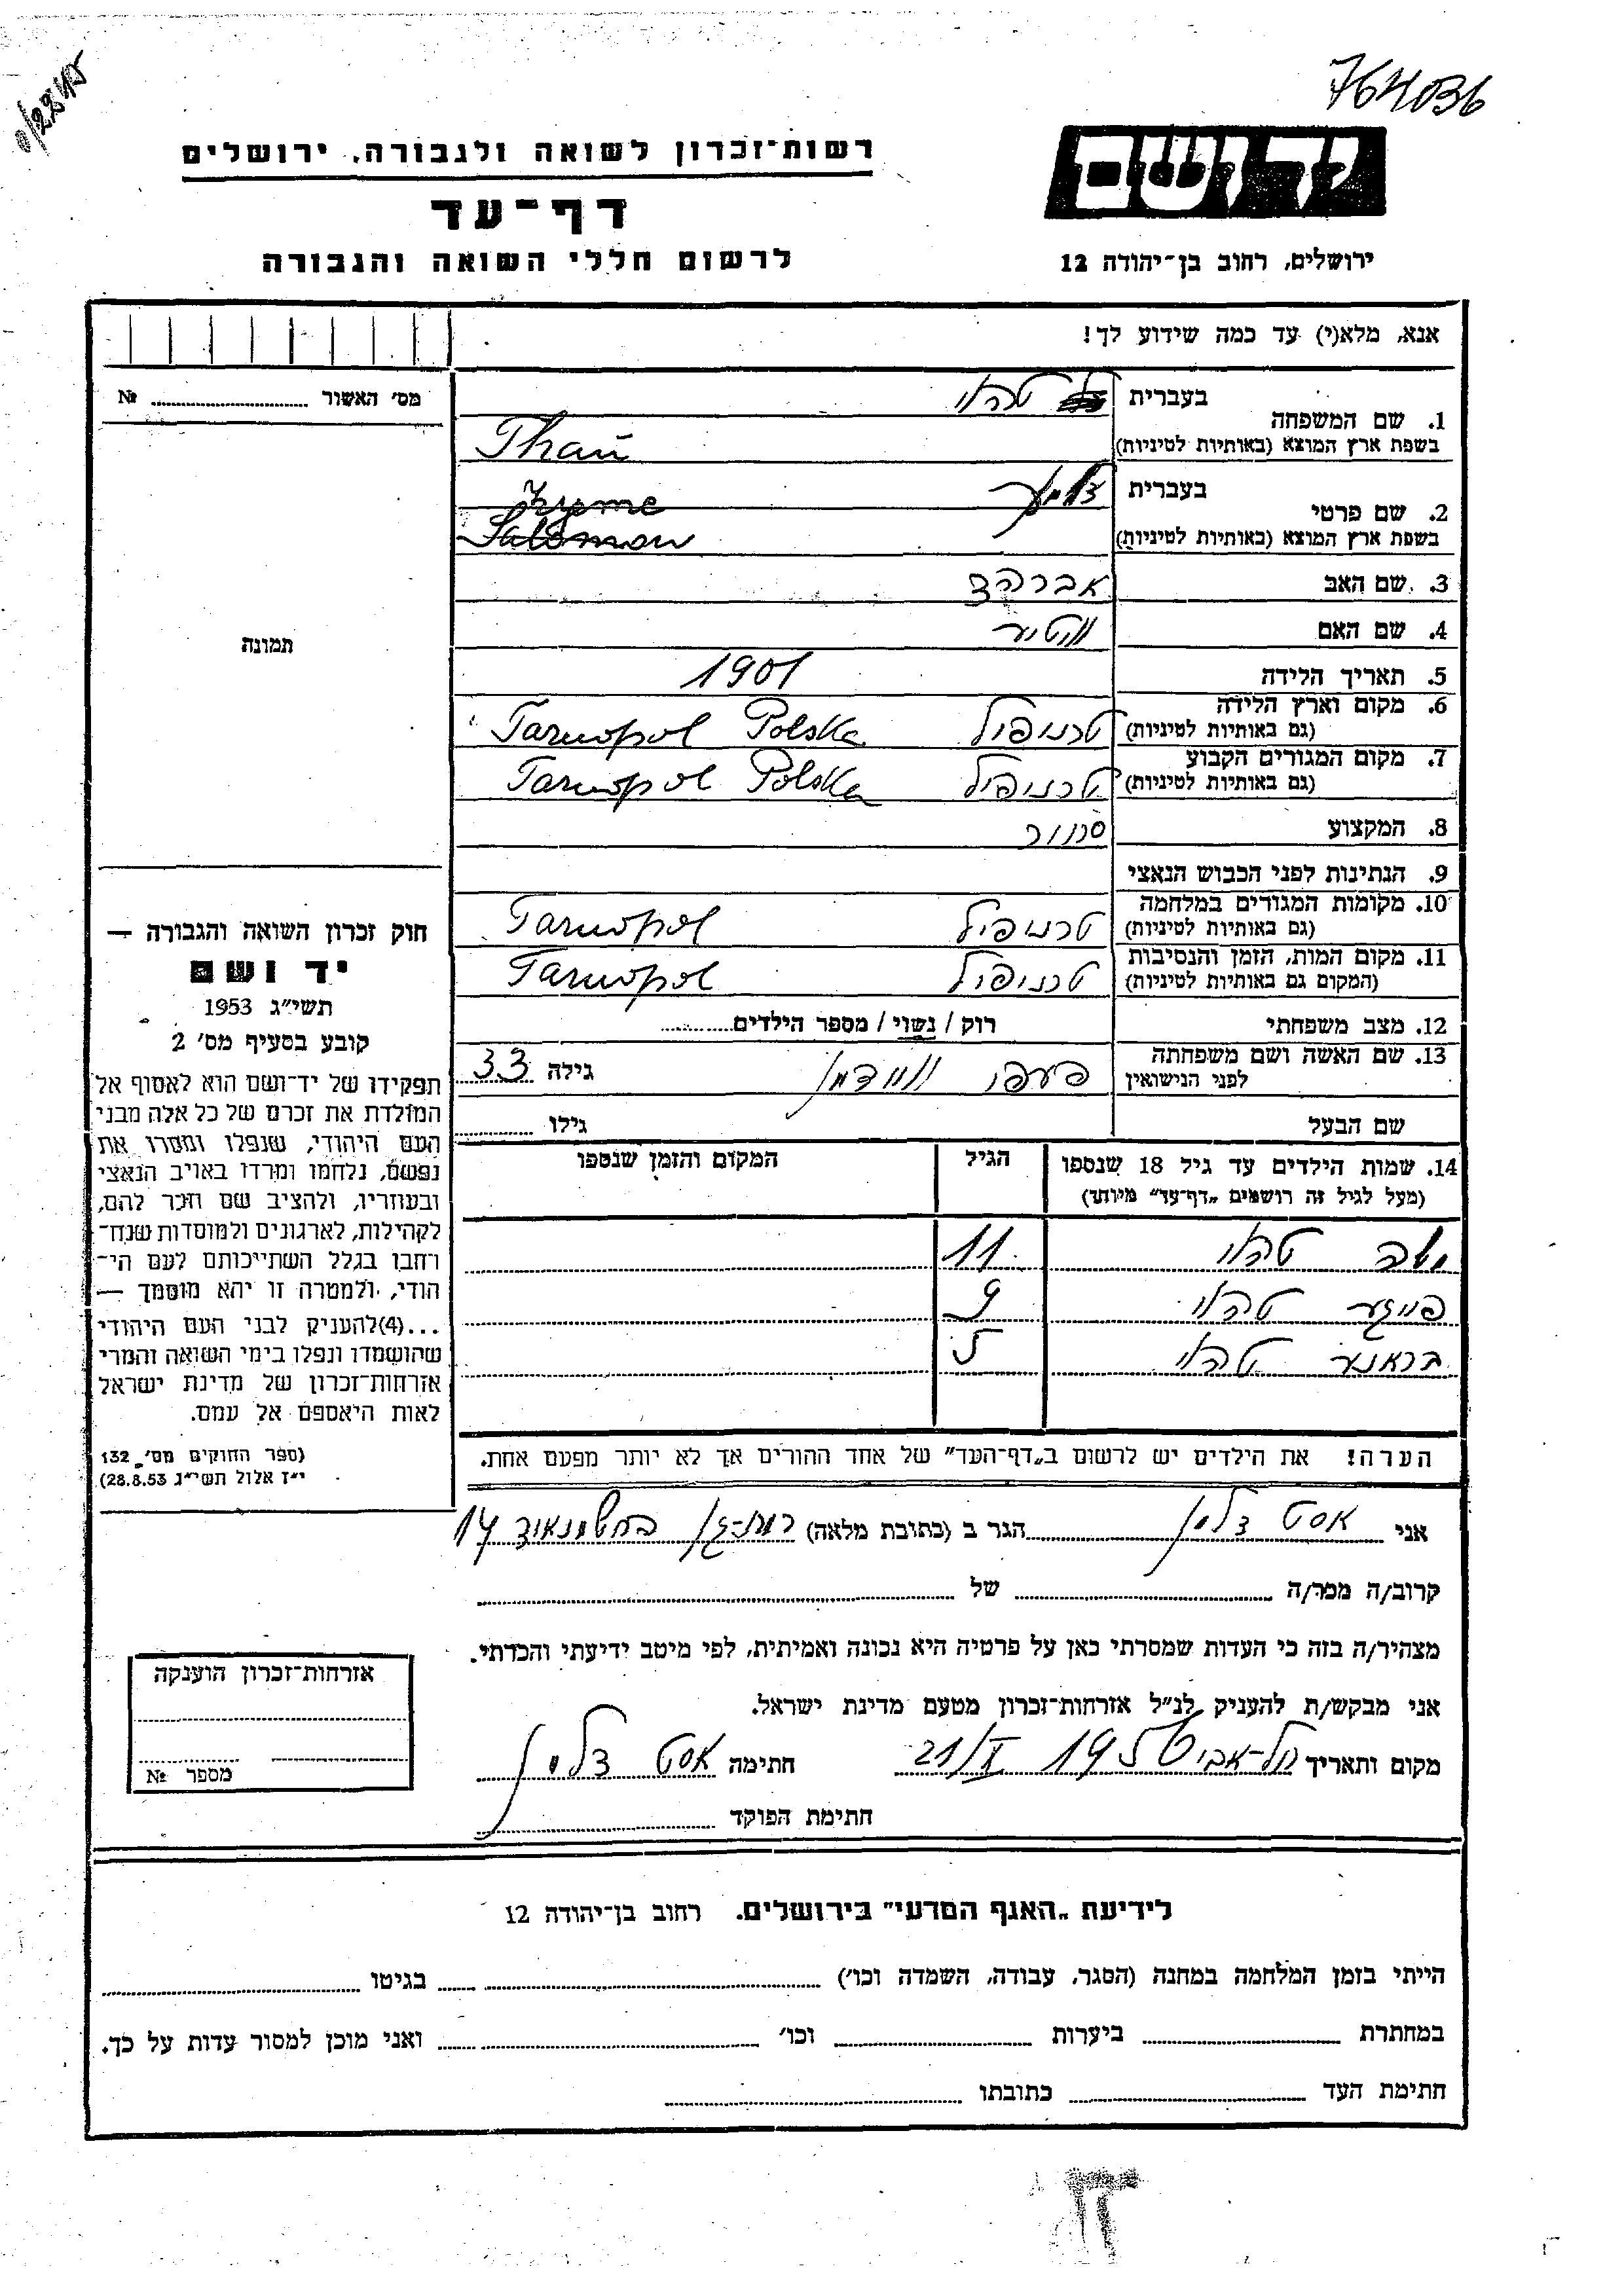 764036
0/2345
יד ושם
רשות־זכרון לשואה ולגבורה, ירושלים
דף־עד
לרשום חללי השואה והגבורה
ירושלים, רחוב בן־יהודה 12
אנא, מלא(י) עד כמה שידוע לך!
מס׳ האשור № 
תמונה
חוק זכרון השואה והגבורה —
יד ושם
תשי״ג 1953
קובע בסעיף מס׳ 2
תפקידו של יד־ושם הוא לאסוף אל
המולדת את זכרם של כל אלה מבני
העם היהודי, שנפלו ומסרו את
נפשם, נלחמו ומרדו באויב הנאצי
ובעוזריו, ולהציב שם וזכר להם,
לקהילות, לארגונים ולמוסדות שנח־
רחבו בגלל השתייכותם לעם הי־
הודי, ולמטרה זו יהא מוסמך —
...(4)להעניק לבני העם היהודי
שהושמדו ונפלו בימי השואה והמרי
אזרחות־זכרון של מדינת ישראל
לאות היאספם אל עמם.
(ספר החוקים מס׳ 132
י״ז אלול תשי״ג 28.8.53)
1. שם המשפחה
בעברית
בשפת ארץ המוצא (באותיות לטיניות) Thau
2. שם פרטי
בעברית
Zyome
בשפת ארץ המוצא (באותיות לטיניות) Salomon
3. שם האב אברהם
4. שם האם
5. תאריך הלידה 1901
6. מקום וארץ הלידה
(גם באותיות לטיניות) טרנופול Tarnopol Polska
7. מקום המגורים הקבוע
(גם באותיות לטיניות) טרנופול Tarnopol Polska
8. המקצוע סוחר
9. הנתינות לפני הכבוש הנאצי
10. מקומות המגורים במלחמה
(גם באותיות לטיניות) טרנופול Tarnopol
11. מקום המות, הזמן והנסיבות
(המקום גם באותיות לטיניות) טרנופול Tarnopol
12. מצב משפחתי רוק / נשוי / מספר הילדים
13. שם האשה ושם משפחתה
לפני הנישואין גילה 33
שם הבעל גילו
14. שמות הילדים עד גיל 18 שנספו הגיל המקום והזמן שנספו
(מעל לגיל זה רושמים „דף־עד״ מיוחד)
11
9
5
הערה! את הילדים יש לרשום ב„דף־העד״ של אחד ההורים אך לא יותר מפעם אחת.
אני הגר ב (כתובת מלאה) רמת־גן 14
קרוב/ה מכר/ה של
מצהיר/ה בזה כי העדות שמסרתי כאן על פרטיה היא נכונה ואמיתית, לפי מיטב ידיעתי והכרתי.
אני מבקש/ת להעניק לנ״ל אזרחות־זכרון מטעם מדינת ישראל.
מקום ותאריך תל־אביב חתימה
חתימת הפוקד
אזרחות־זכרון הוענקה
מספר №
לידיעת „האגף המדעי״ בירושלים. רחוב בן־יהודה 12
הייתי בזמן המלחמה במחנה (הסגר, עבודה, השמדה וכו׳) בגיטו
במחתרת ביערות וכו׳ ואני מוכן למסור עדות על כך.
חתימת העד כתובתו